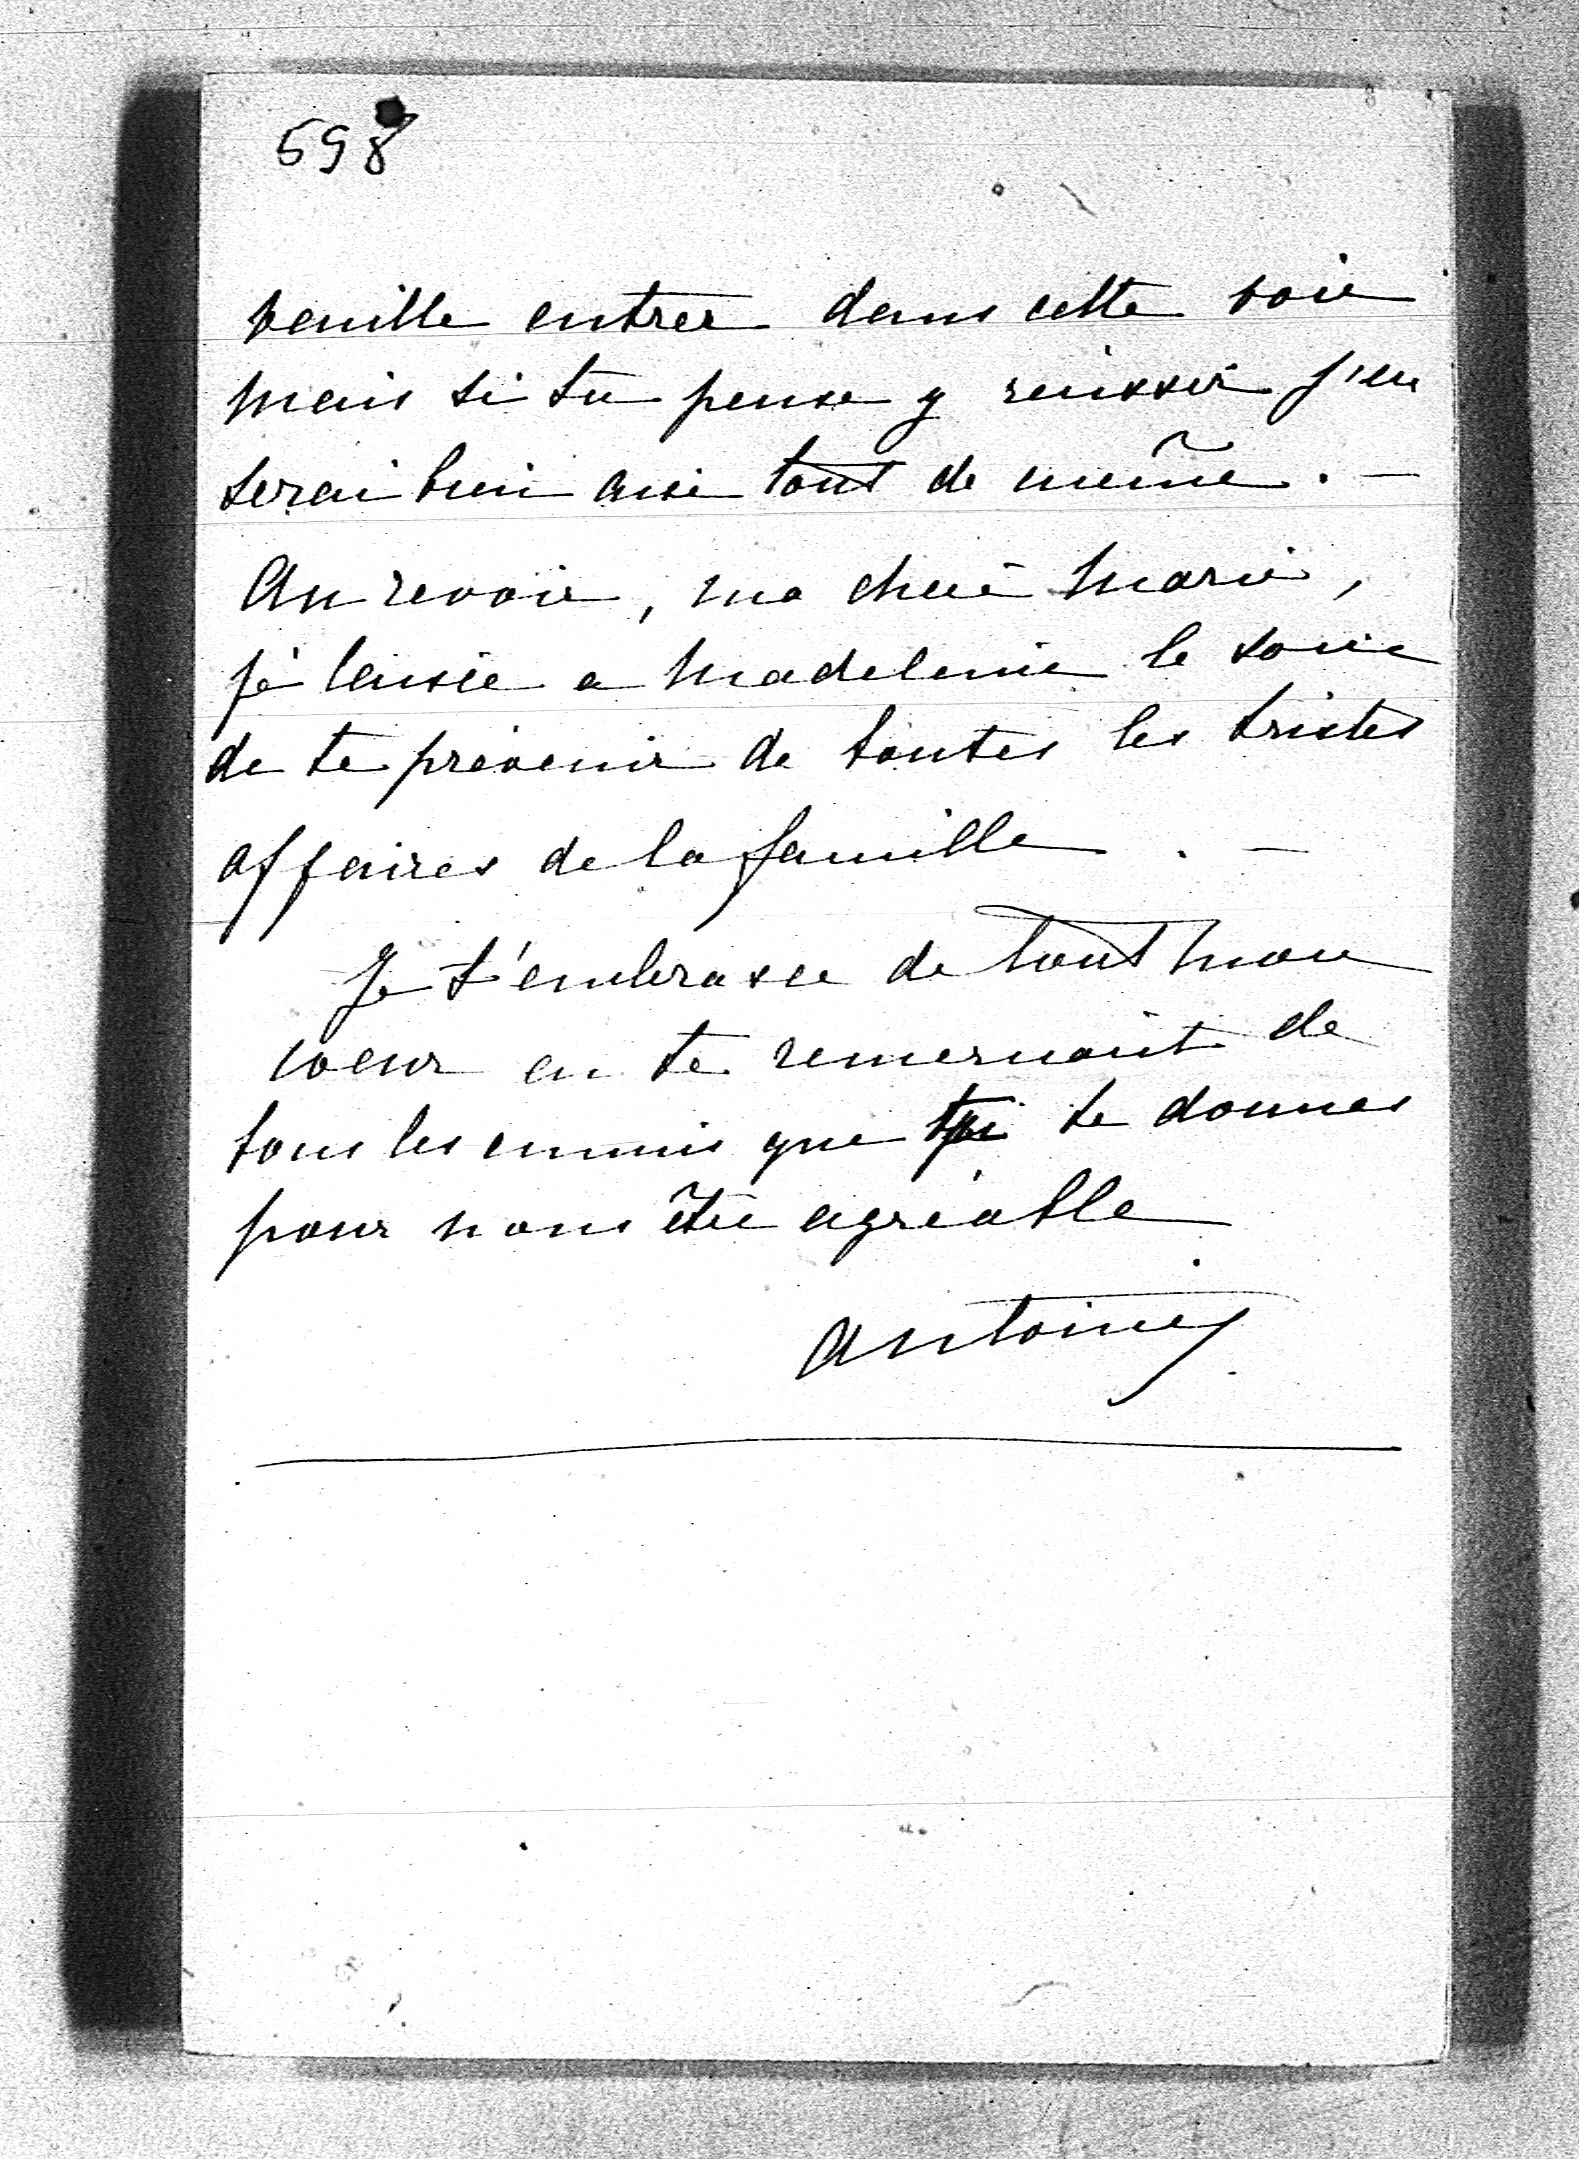 598
veuille entrer dans cette voie
mais si tu pense y reussir j'en
serai bien aise tout de même. —
Au revoir, ma chère Marie,
je laisse a Madeleine le soin
de te prévenir de toutes les tristes
affaires de la famille. —
Je t'embrasse de tout mon
coeur en te remerciant de
tous les ennuis que tu te donnes
pour nous être agréable
Antoine